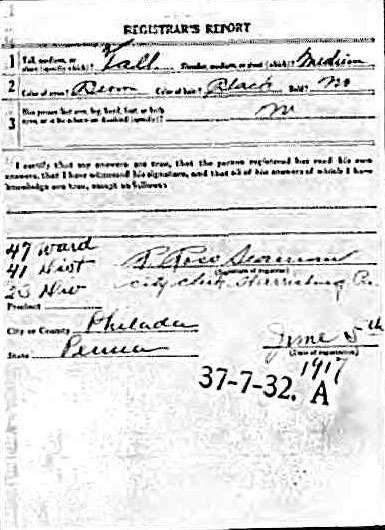 REGISTRAR'S REPORT
1 Tall, medium, or short (specify which)? Tall Slender, medium, or stout (which)? Medium
2 Color of eyes? Brown Color of hair? Black Bald? No
3 Has person lost arm, leg, hand, foot, or both eyes, or is he otherwise disabled (specify)? No
I certify that my answers are true, that the person registered has read his own
answers, that I have witnessed his signature, and that all of his answers of which I have
knowledge are true, except as follows:
47 Ward
41 Dist
23 Div
R. Ross
(Signature of registrar)
City Clerk Harrisburg Pa.
Precinct
City or County Philada
State Penna
June 5th
(Date of registration)
1917
37-7-32. A